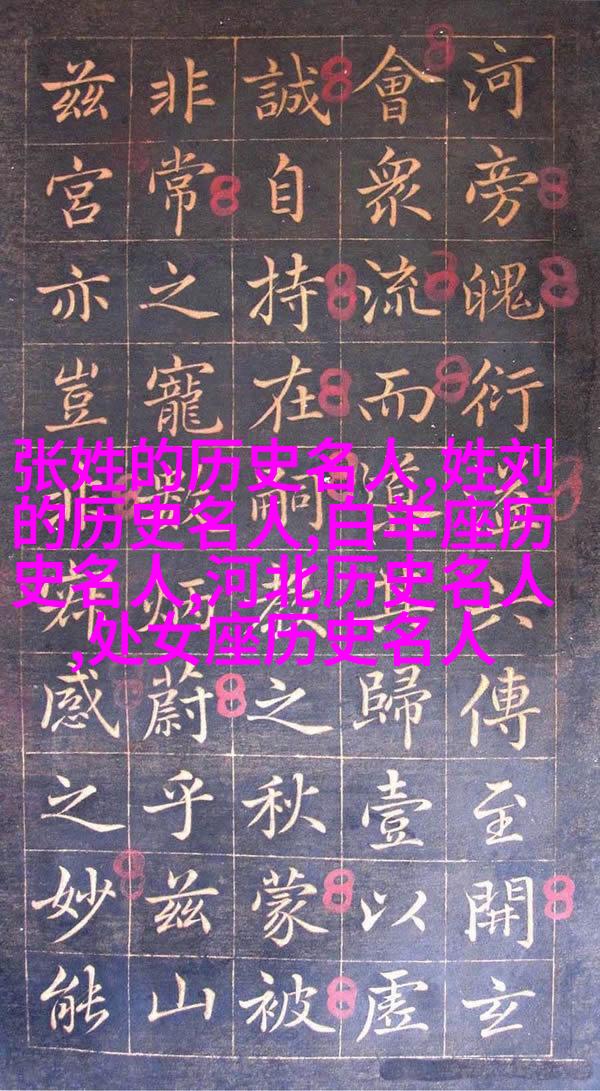 河旁魄衍六傳至開玄
會衆流而道歸壹以虛
誠自持在嗣教之秋蒙被
非常之寵歟煙蔚乎兹山
兹宮亦豈非感之妙能
张姓的历史名人,姓刘
的历史名人,白羊座历
史名人,河北历史名人
,处女座历史名人